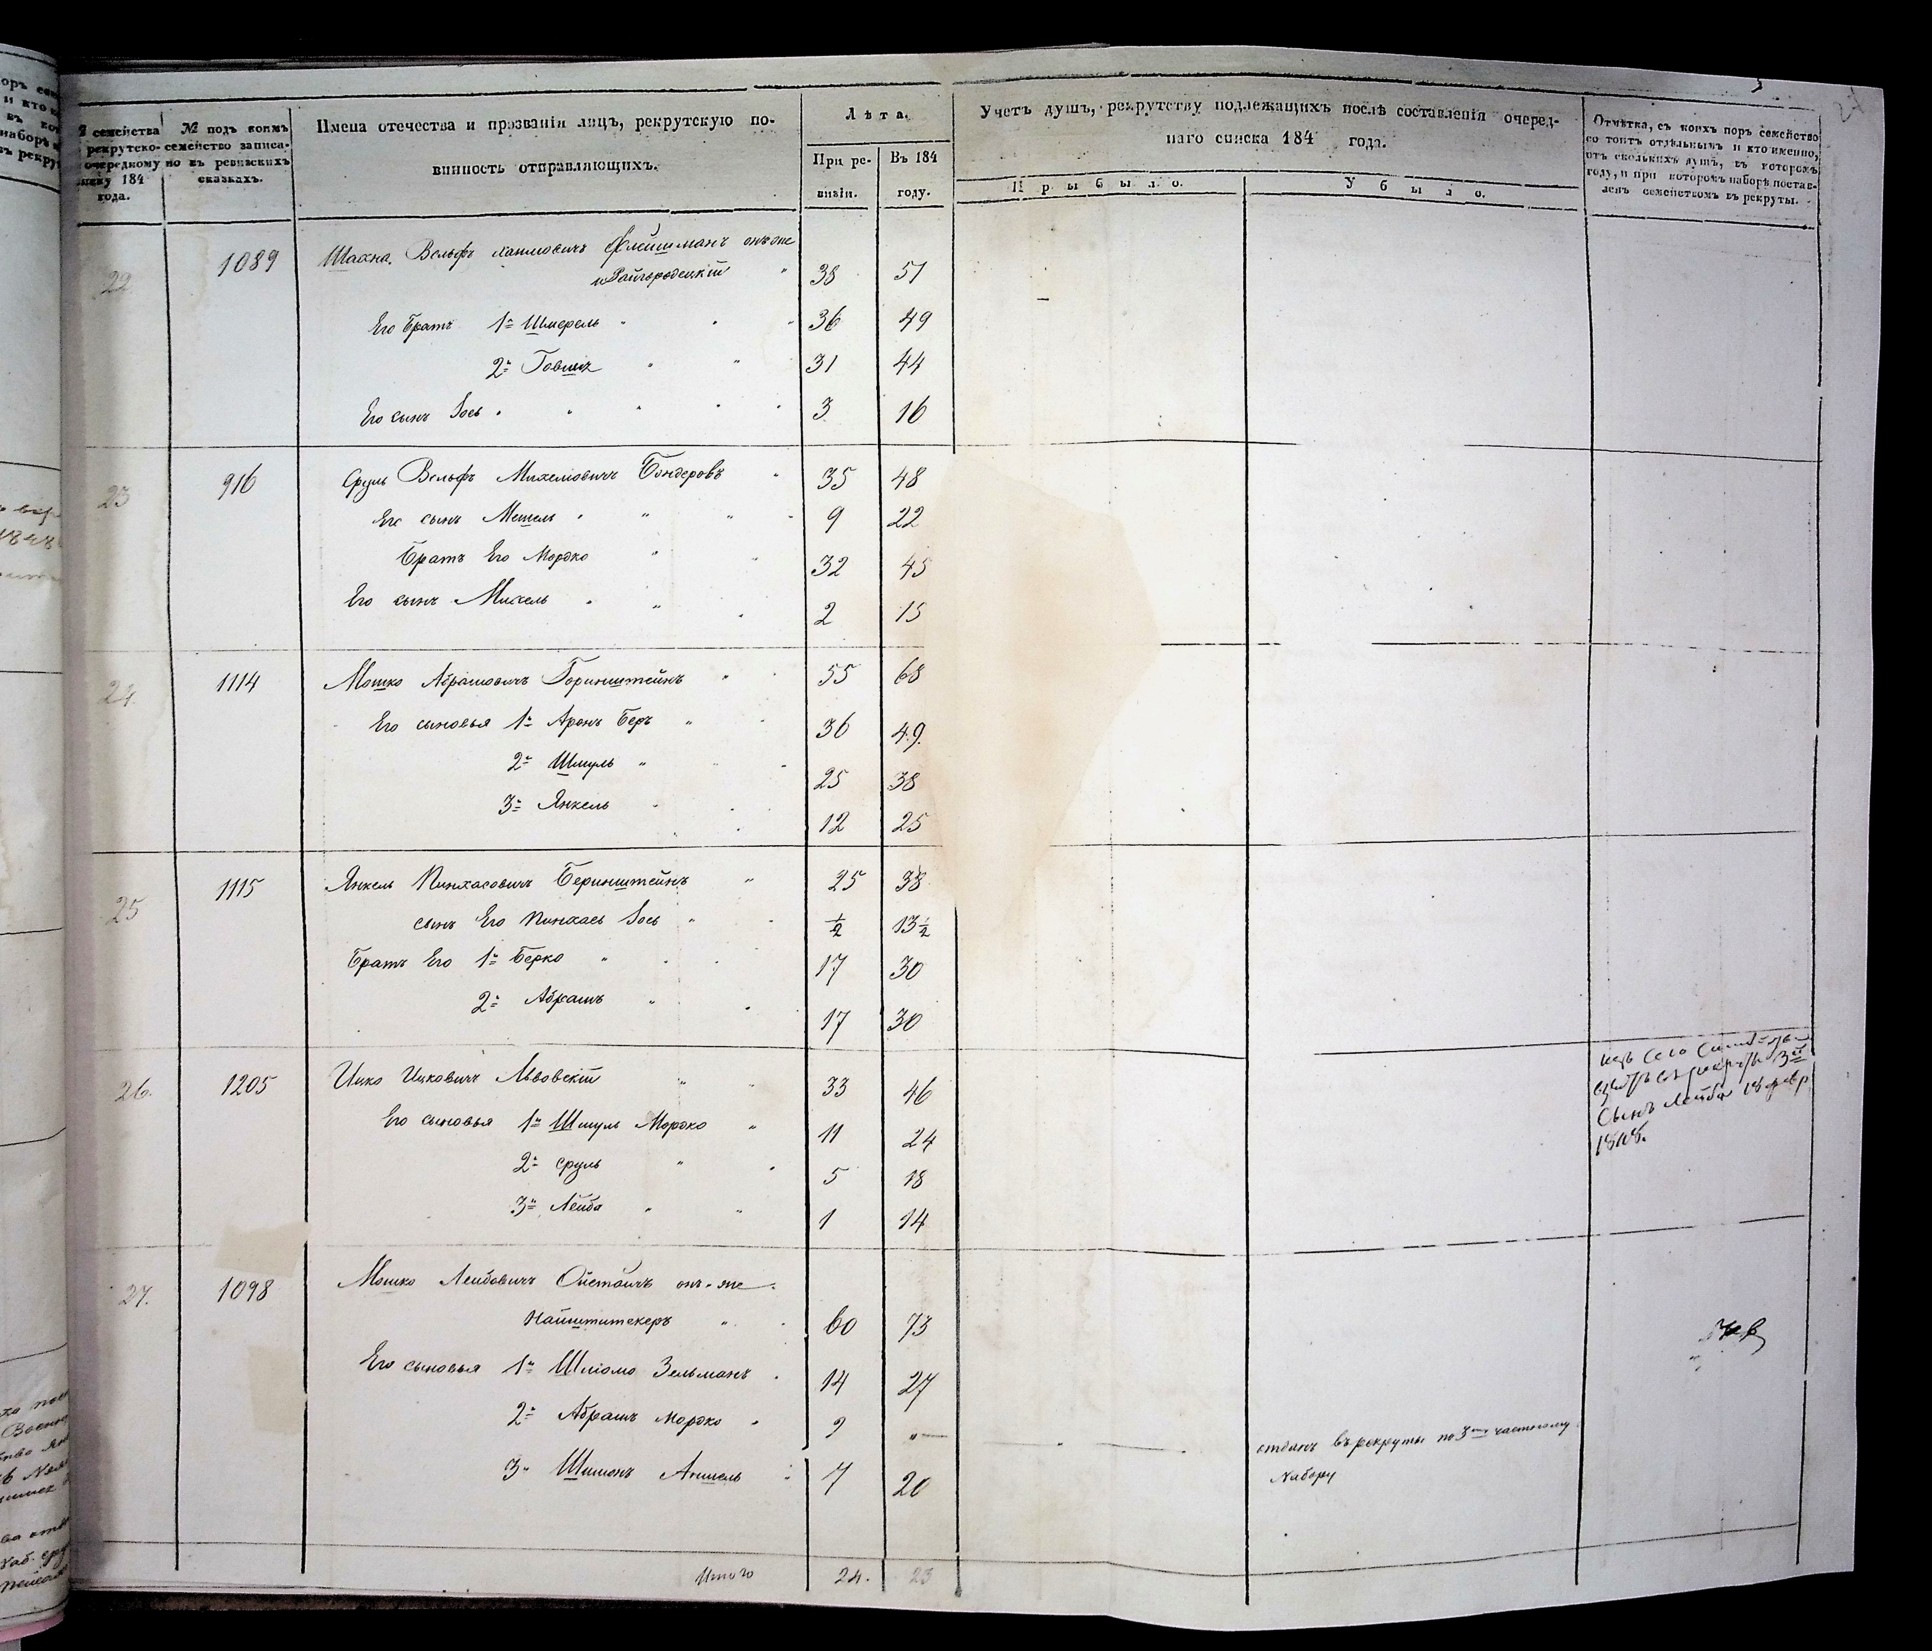 № семейства по рекрутско-
му очередному
списку 184
года.
№ подъ коимъ
семейство записа-
но въ ревизскихъ
сказкахъ.
Имена отечества и прозванія лицъ, рекрутскую по-
винность отправляющихъ.
Лѣта.
При ре-
визіи.
Въ 184
году.
Учетъ душъ, рекрутству подлежащихъ послѣ составленія очеред-
наго списка 184 года.
Прибыло.
Убыло.
Отмѣтка, съ коихъ поръ семейство
со тоитъ отдѣльнымъ и кто именно,
отъ сколькихъ душъ, въ которомъ
году, и при которомъ наборѣ постав-
ленъ семействомъ въ рекруты.
22 1089 Шахна Вольфъ Хаимовичъ Флейшманъ онъ же
и Райгородецкій 38 51
Его братъ 1й Шмерель 36 49
2й Говшія 31 44
Его сынъ Іось 3 16
23 916 Сруль Вольфъ Михелювичъ Бондеровъ 35 48
Его сынъ Мешель 9 22
Братъ Его Мордко 32 45
Его сынъ Михель 2 15
24 1114 Мошко Абрамовичъ Горинштейнъ 55 68
Его сыновья 1й Аронъ Беръ 36 49.
2й Шмуль 25 38
3й Янкель 12 25
25 1115 Янкель Пинхасовичъ Беринштейнъ 25 38
сынъ Его Пинхасъ Іось ½ 13½
Братъ Его 1й Берко 17 30
2й Абрамъ 17 30
26. 1205 Ицко Ицковичъ Львовскій 33 46
Его сыновья 1й Шмуль Мордко 11 24
2й Сруль 5 18
3й Лейба 1 14
изъ сего
рекруты 3й
Сынъ Лейба 18 февр
1848.
27. 1098 Мошко Лейбовичъ онъ-же
Найштитекеръ 60 73
Его сыновья 1й Шліомо Зельманъ 14 27
2й Абрамъ Мордко 9 „— отданъ въ рекруты по 3му частному
Набору
3й Шимонъ Аншель 7 20
Итого 24. 23